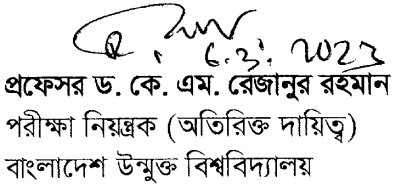 6.3.2023
প্রফেসর ড. কে. এম. রেজানুর রহমান
পরীক্ষা নিয়ন্ত্রক (অতিরিক্ত দায়িত্ব)
বাংলাদেশ উন্মুক্ত বিশ্ববিদ্যালয়